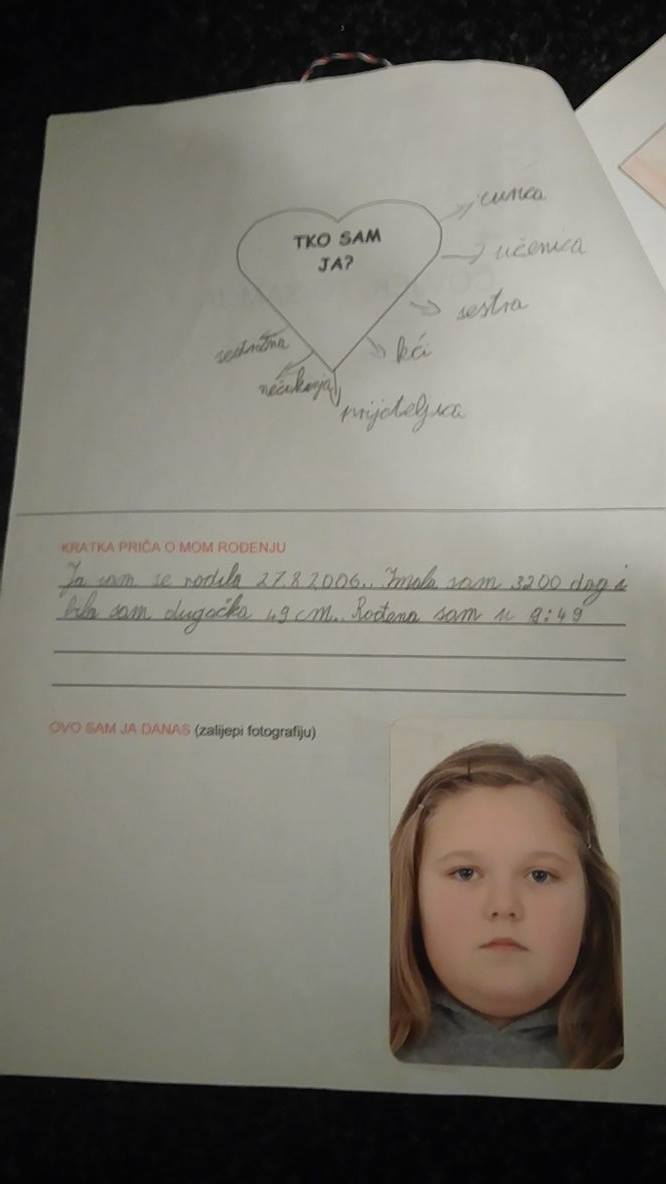 TKO SAM
JA?
unuka
učenica
sestra
kći
prijateljica
nećakinja
sestrična
KRATKA PRIČA O MOM ROĐENJU
Ja sam se rodila 27.8.2006.. Imala sam 3200 dag i
bila sam dugačka 49 cm.. Rođena sam u 9:49
OVO SAM JA DANAS (zalijepi fotografiju)